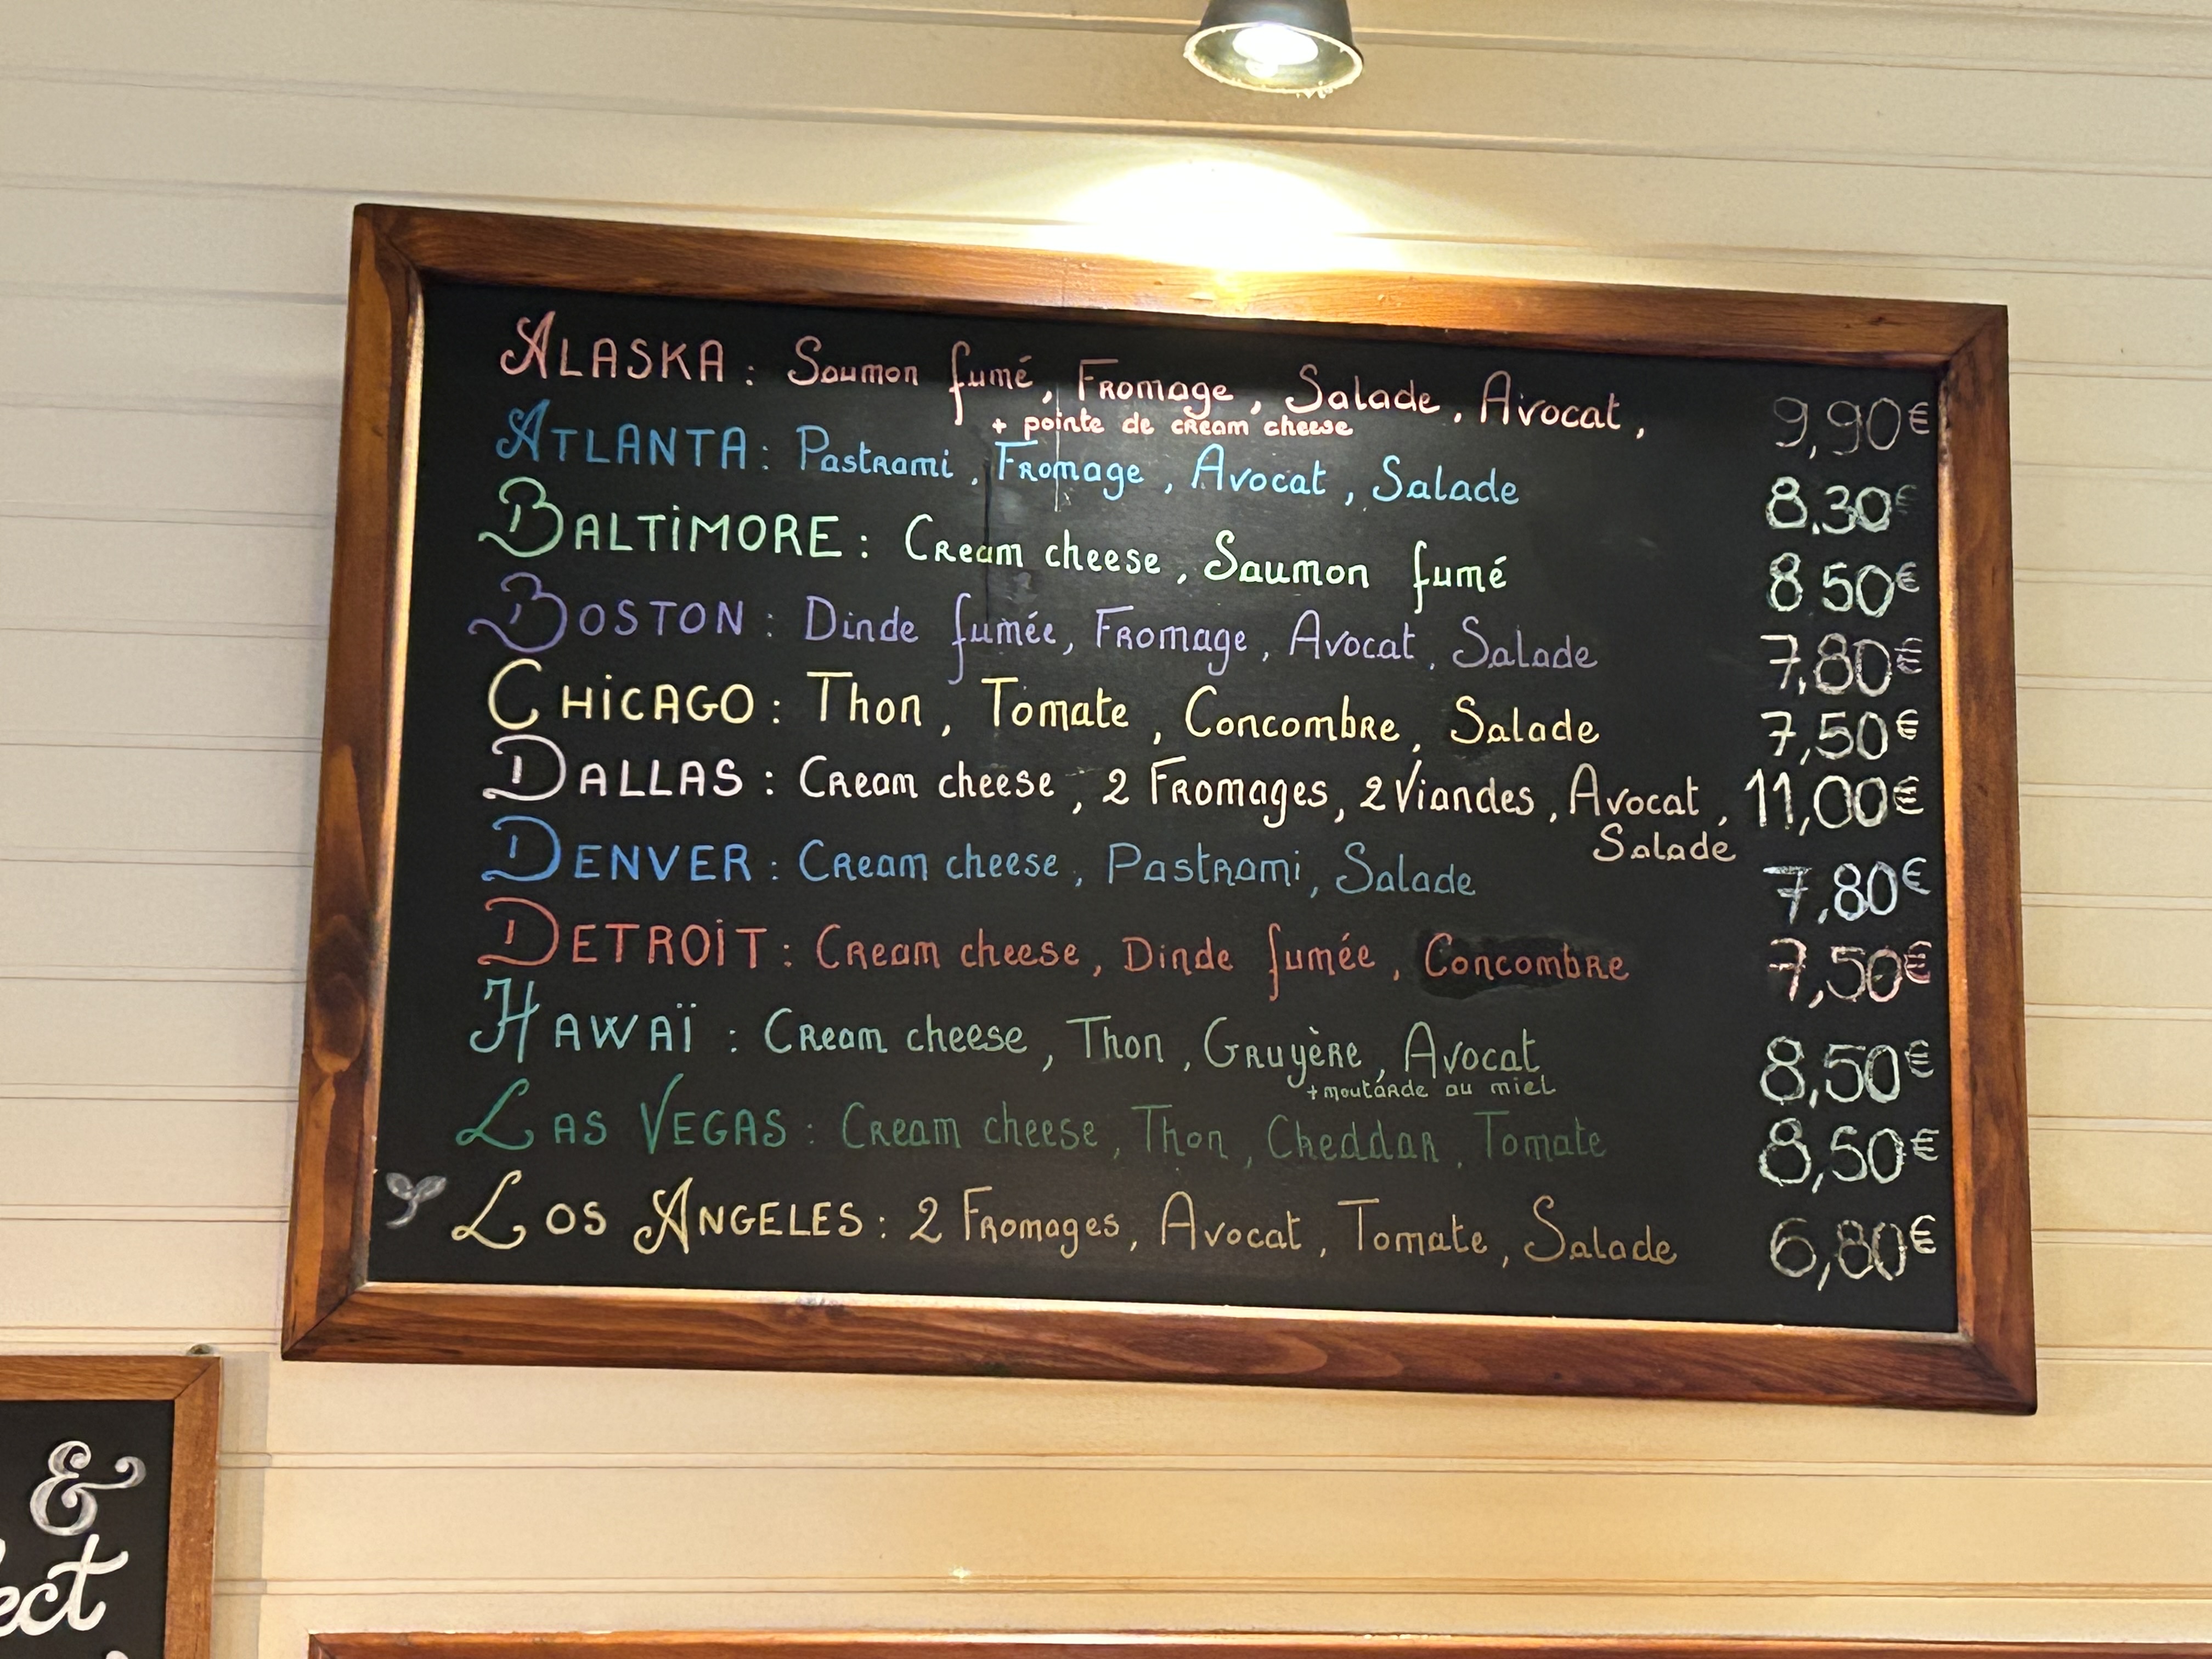 ALASKA : Saumon fumé, Fromage, Salade, Avocat, 9,90€
+ pointe de cream cheese
ATLANTA : Pastrami, Fromage, Avocat, Salade 8.30€
BALTIMORE : Cream cheese, Saumon fumé 8 50€
BOSTON : Dinde fumée, Fromage, Avocat, Salade 7,80€
CHICAGO : Thon, Tomate, Concombre, Salade 7,50€
DALLAS : Cream cheese, 2 Fromages, 2 Viandes, Avocat, 11,00€
Salade
DENVER : Cream cheese, Pastrami, Salade 7,80€
DETROIT : Cream cheese, Dinde fumée, Concombre 7,50€
HAWAÏ : Cream cheese, Thon, Gruyère, Avocat 8,50€
+ moutarde au miel
LAS VEGAS : Cream cheese, Thon, Cheddar, Tomate 8,50€
LOS ANGELES : 2 Fromages, Avocat, Tomate, Salade 6,80€
&